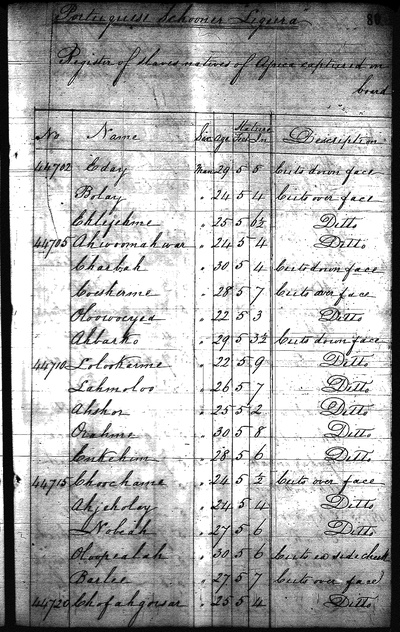 Portuguese Schooner "Ligeira" 80
Register of slaves natives of Africa captured on
board
No Name Sex Age Stature Feet In Description
44702 Eday Man 29 5 5 Cuts down face
Bolay " 24 5 4 Cuts over face
Ehlejehme " 25 5 6½ Ditto
44705 Ahwoomahwar " 24 5 4 Ditto
Charbah " 30 5 4 Cuts down face
Coesherme " 28 5 7 Cuts over face
Oloowoeyea " 22 5 3 Ditto
Abbarko " 29 5 3½ Cuts down face
44710 Lolookerme " 22 5 9 Ditto
Lahmoloo " 26 5 7 Ditto
Ahshor " 25 5 2 Ditto
Orahme " 30 5 8 Ditto
Enkehim " 28 5 6 Ditto
44715 Choochame " 24 5 ½ Cuts over face
Ahjeholoy " 24 5 4 Ditto
Nobeah " 27 5 6 Ditto
Oloopealah " 30 5 6 Cuts ea side cheek
Barlee " 27 5 7 Cuts over face
44720 Chofahgoisar " 25 5 4 Ditto